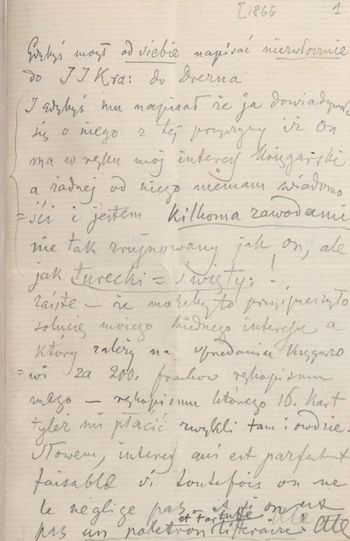 [1866 1
Gdybyś mógł od siebie napisać niezwłocznie
do J I Kra: do Drezna
I gdybyś mu napisał że ja dowiaduję
się o niego z tej przyczyny iż on
ma w ręku mój interes Księgarski
a żadnej od niego niemam wiadomo
=ści i jestem kilkoma zawodami
nie tak zrujnowany jak on, ale
jak turecki = święty:
że możeby to przyśpieszyło
mojego biednego interesu a
który zależy na sprzedaniu Księgarzo
=wi za 200. franków rękopismu
mego — rękopismu którego 16. kart
tyleż mi płacić zwykli tam i owdzie.
Słowem, interes qui est parfait
faisable si toutefois on ne
le néglige pas et si on est
pas un poletron littéraire
et Tartuffe